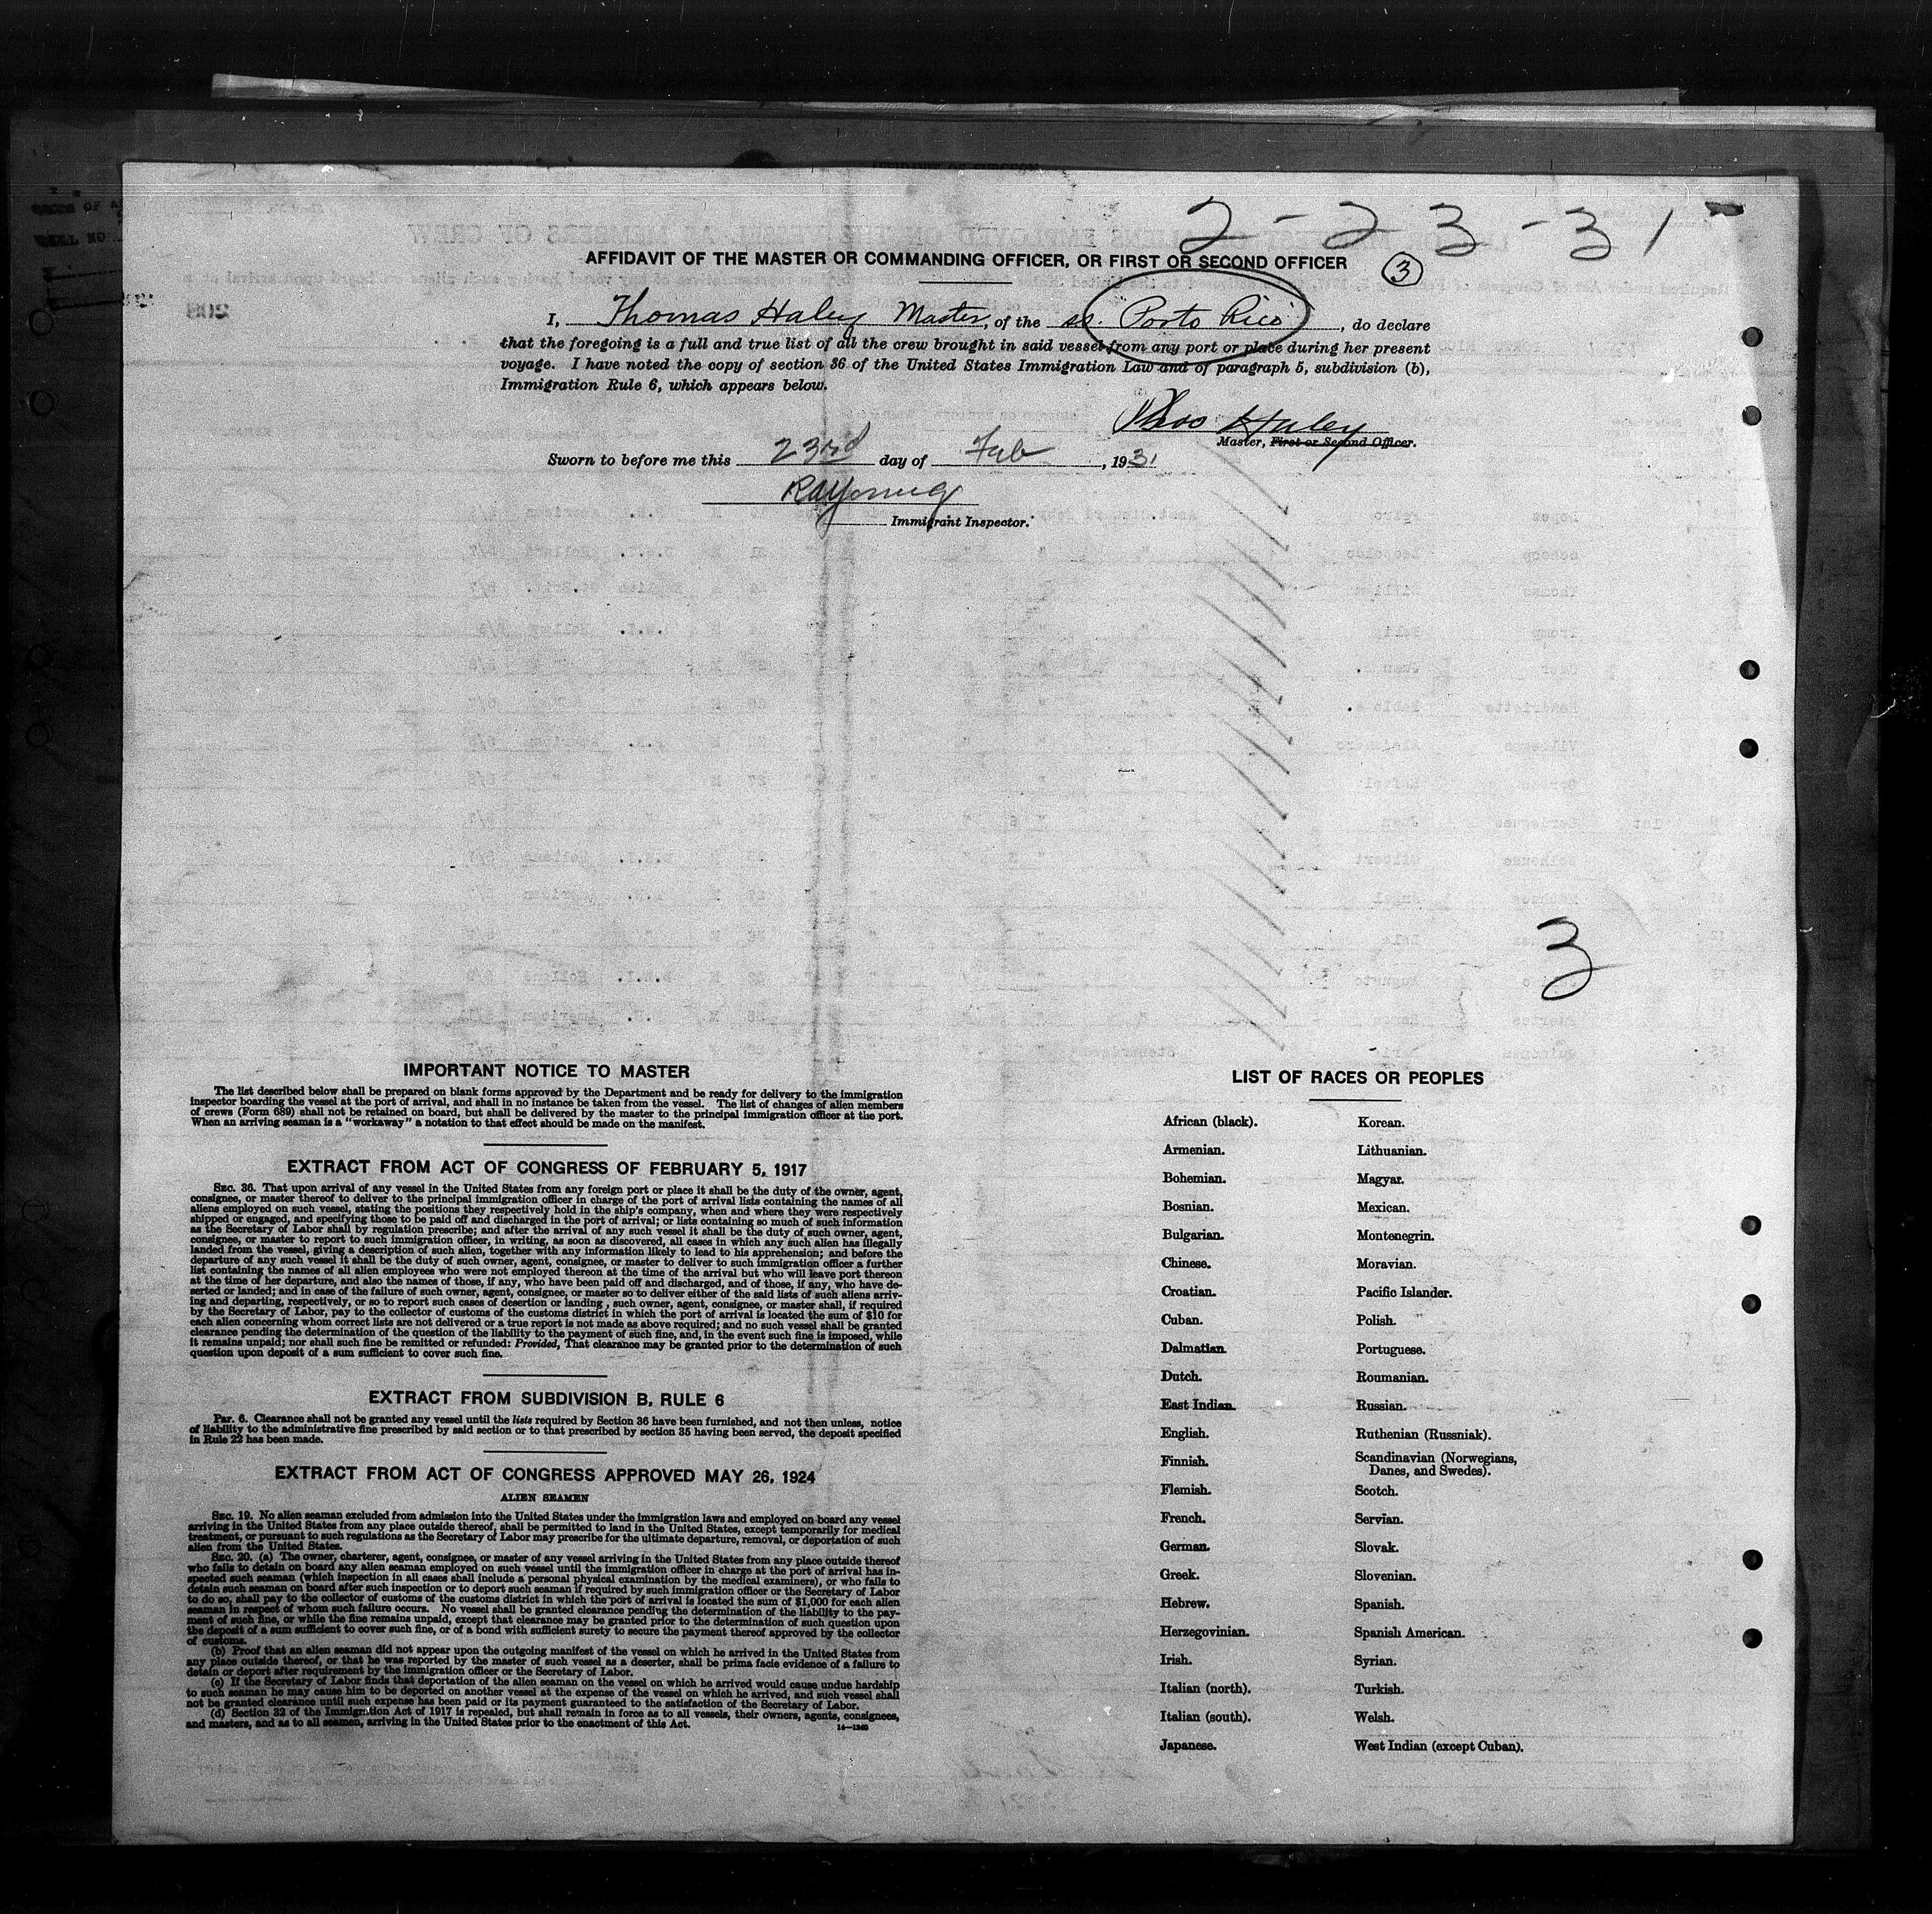 2-23-31
AFFIDAVIT OF THE MASTER OR COMMANDING OFFICER, OR FIRST OR SECOND OFFICER
3
I, Thomas Haley Master, of the ss. "Porto Rico", do declare
that the foregoing is a full and true list of all the crew brought in said vessel from any port or place during her present
voyage. I have noted the copy of section 36 of the United States Immigration Law and of paragraph 5, subdivision (b),
Immigration Rule 6, which appears below.
Thos Haley
Master, First or Second Officer.
Sworn to before me this 23rd day of Feb, 1931
RA Young
Immigrant Inspector.
3
IMPORTANT NOTICE TO MASTER
The list described below shall be prepared on blank forms approved by the Department and be ready for delivery to the immigration
inspector boarding the vessel at the port of arrival, and shall in no instance be taken from the vessel. The list of changes of alien members
of crews (Form 689) shall not be retained on board, but shall be delivered by the master to the principal immigration officer at the port.
When an arriving seaman is a "workaway" a notation to that effect should be made on the manifest.
EXTRACT FROM ACT OF CONGRESS OF FEBRUARY 5, 1917
SEC. 36. That upon arrival of any vessel in the United States from any foreign port or place it shall be the duty of the owner, agent,
consignee, or master thereof to deliver to the principal immigration officer in charge of the port of arrival lists containing the names of all
aliens employed on such vessel, stating the positions they respectively hold in the ship's company, when and where they were respectively
shipped or engaged, and specifying those to be paid off and discharged in the port of arrival; or lists containing so much of such information
as the Secretary of Labor shall by regulation prescribe; and after the arrival of any such vessel it shall be the duty of such owner, agent,
consignee, or master to report to such immigration officer, in writing, as soon as discovered, all cases in which any such alien has illegally
landed from the vessel, giving a description of such alien, together with any information likely to lead to his apprehension; and before the
departure of any such vessel it shall be the duty of such owner, agent, consignee, or master to deliver to such immigration officer a further
list containing the names of all alien employees who were not employed thereon at the time of the arrival but who will leave port thereon
at the time of her departure, and also the names of those, if any, who have been paid off and discharged, and of those, if any, who have de-
serted or landed; and in case of the failure of such owner, agent, consignee, or master so to deliver either of the said lists of such aliens arriv-
ing and departing, respectively, or so to report such cases of desertion or landing, such owner, agent, consignee, or master shall, if required
by the Secretary of Labor, pay to the collector of customs of the customs district in which the port of arrival is located the sum of $10 for
each alien concerning whom correct lists are not delivered or a true report is not made as above required; and no such vessel shall be granted
clearance pending the determination of the question of the liability to the payment of such fine, and, in the event such fine is imposed, while
it remains unpaid; nor shall such fine be remitted or refunded: Provided, That clearance may be granted prior to the determination of such
question upon deposit of a sum sufficient to cover such fine.
EXTRACT FROM SUBDIVISION B, RULE 6
Par. 6. Clearance shall not be granted any vessel until the lists required by Section 36 have been furnished, and not then unless, notice
of liability to the administrative fine prescribed by said section or to that prescribed by section 35 having been served, the deposit specified
in Rule 22 has been made.
EXTRACT FROM ACT OF CONGRESS APPROVED MAY 26, 1924
ALIEN SEAMEN
SEC. 19. No alien seaman excluded from admission into the United States under the immigration laws and employed on board any vessel
arriving in the United States from any place outside thereof, shall be permitted to land in the United States, except temporarily for medical
treatment, or pursuant to such regulations as the Secretary of Labor may prescribe for the ultimate departure, removal, or deportation of such
alien from the United States.
SEC. 20. (a) The owner, charterer, agent, consignee, or master of any vessel arriving in the United States from any place outside thereof
who fails to detain on board any alien seaman employed on such vessel until the immigration officer in charge at the port of arrival has in-
spected such seaman (which inspection in all cases shall include a personal physical examination by the medical examiners), or who fails to
detain such seaman on board after such inspection or to deport such seaman if required by such immigration officer or the Secretary of Labor
to do so, shall pay to the collector of customs of the customs district in which the port of arrival is located the sum of $1,000 for each alien
seaman in respect of whom such failure occurs. No vessel shall be granted clearance pending the determination of the liability to the pay-
ment of such fine, or while the fine remains unpaid, except that clearance may be granted prior to the determination of such question upon
the deposit of a sum sufficient to cover such fine, or of a bond with sufficient surety to secure the payment thereof approved by the collector
of customs.
(b) Proof that an alien seaman did not appear upon the outgoing manifest of the vessel on which he arrived in the United States from
any place outside thereof, or that he was reported by the master of such vessel as a deserter, shall be prima facie evidence of a failure to
detain or deport after requirement by the immigration officer or the Secretary of Labor.
(c) If the Secretary of Labor finds that deportation of the alien seaman on the vessel on which he arrived would cause undue hardship
to such seaman he may cause him to be deported on another vessel at the expense of the vessel on which he arrived, and such vessel shall
not be granted clearance until such expense has been paid or its payment guaranteed to the satisfaction of the Secretary of Labor.
(d) Section 32 of the Immigration Act of 1917 is repealed, but shall remain in force as to all vessels, their owners, agents, consignees,
and masters, and as to all seamen, arriving in the United States prior to the enactment of this Act.
14—1240
LIST OF RACES OR PEOPLES
African (black). Korean.
Armenian. Lithuanian.
Bohemian. Magyar.
Bosnian. Mexican.
Bulgarian. Montenegrin.
Chinese. Moravian.
Croatian. Pacific Islander.
Cuban. Polish.
Dalmatian. Portuguese.
Dutch. Roumanian.
East Indian. Russian.
English. Ruthenian (Russniak).
Finnish. Scandinavian (Norwegians,
Danes, and Swedes).
Flemish. Scotch.
French. Servian.
German. Slovak.
Greek. Slovenian.
Hebrew. Spanish.
Herzegovinian. Spanish American.
Irish. Syrian.
Italian (north). Turkish.
Italian (south). Welsh.
Japanese. West Indian (except Cuban).